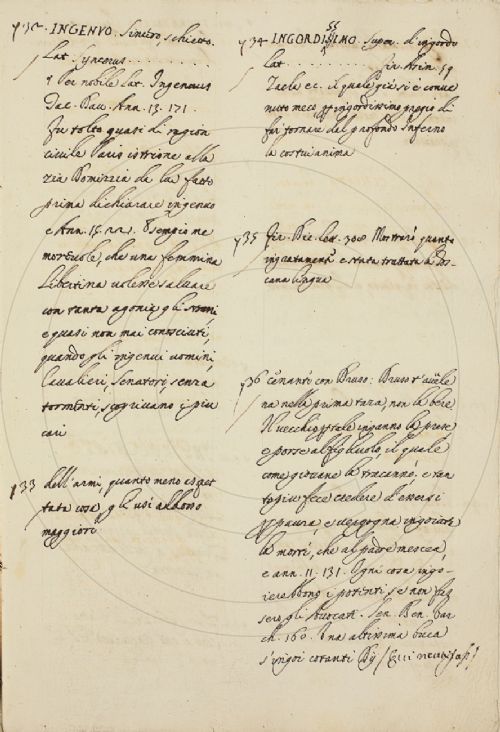 p32. INGENVO. Sincero, schietto.
Lat. Syncerus . . . . . . . .
¶ Per nobile Lat. Ingenuus
Dav. Tac. Ann. 13. 171.
Fu tolto quasi di ragion
civile Paris istrione alla
zia Domizia da lui fatto
prima dichiarare ingenuo
e Ann. 15. 222. Esempio me
morevole, che una femmina
libertina volesse salvare
con tanta agonia gli strani
e quasi non mai conosciuti,
quando gli ingenui uomini,
Cavalieri, Senatori, senza
tormenti, scoprivano i più
cari
p33 dell'armi, quanto meno aspet
tata cosa, gli usì addosso
maggiore
p34 INGORDISSIMO. Super. d'ingordo
Lat. . . . . . . . . 19
Zaele ec. il quale già si è conve
nuto meco, ingordissimo pregio di
far tornare dal profondo Inferno
la costui anima
p35 Fir. Dis. Let. 308 Mostrerò quanto
ingratamente è stata trattata la To-
cana lingua
p36 Druso: Druso t'avvele
na nella prima taza, non la bere
Il vecchio per tale inganno la prese
e porse al figliuolo, il quale
come giovane la tracannò. e tan
to più fece credere d'essersi
per paura, e vergogna ingoiata
la morte, che al padre mescea,
e ann. 11. 131. Ogni cosa ingo-
ierebbono i potenti, se non fus
sero gli Avvocati. Sen. Ben. Var
ch. 160. Una altissima buca
s'ingoi cotanti